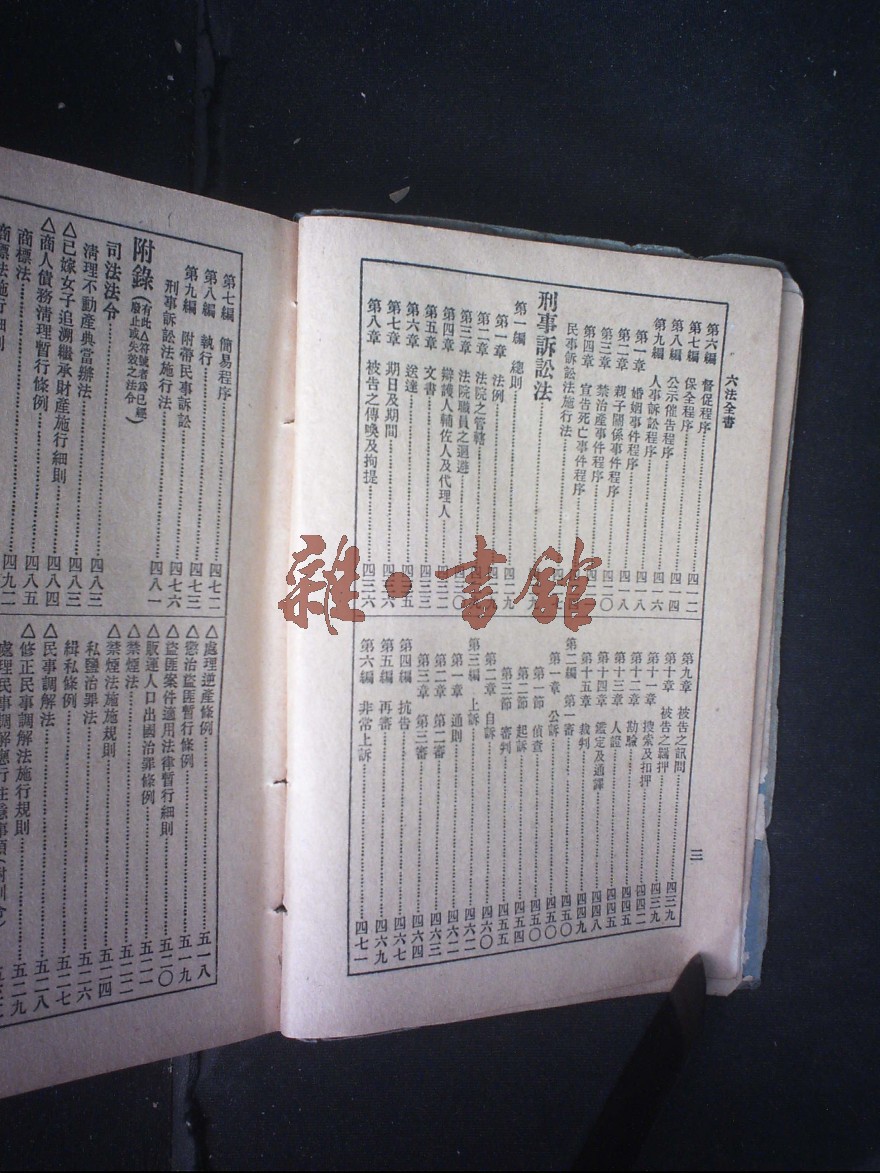 六法全書
三
第六編 督促程序 四一二
第七編 保全程序 四一二
第八編 公示催告程序 四一四
第九編 人事訴訟程序 四一六
第一章 婚姻事件程序 四一六
第二章 親子關係事件程序 四一八
第三章 禁治產事件程序
第四章 宣告死亡事件程序
民事訴訟法施行法
刑事訴訟法
第一編 總則
第一章 法例
第二章 法院之管轄
第三章 法院職員之迴避
第四章 辯護人輔佐人及代理人 四三二
第五章 文書 四三三
第六章 送達
第七章 期日及期間
第八章 被告之傳喚及拘提 四三六
第九章 被告之訊問 四三九
第十章 被告之羈押 四三九
第十一章 搜索及扣押 四四二
第十二章 勘驗 四四五
第十三章 人證 四四五
第十四章 鑑定及通譯 四四八
第十五章 裁判 四四九
第二編 第一審 四五〇
第一章 公訴 四五〇
第一節 偵查 四五〇
第二節 起訴 四五四
第三節 審判 四五五
第二章 自訴 四六〇
第三編 上訴 四六二
第一章 通則 四六二
第二章 第二審 四六三
第三章 第三審 四六四
第四編 抗告 四六七
第五編 再審 四六九
第六編 非常上訴 四七一
第七編 簡易程序 四七二
第八編 執行 四七三
第九編 附帶民事訴訟 四七六
刑事訴訟法施行法 四八一
附錄(有此△符號者爲已經廢止或失效之法令)
司法法令
清理不動產典當辦法 四八三
△已嫁女子追溯繼承財產施行細則 四八三
△商人債務清理暫行條例 四八四
商標法 四八五
商標法施行細則 四九二
△處理逆產條例 五一八
△懲治盜匪暫行條例 五一九
△盜匪案件適用法律暫行細則 五二〇
△販運人口出國治罪條例 五二一
△禁煙法 五二二
△禁煙法施施規則 五二四
私鹽治罪法 五二六
緝私條例 五二七
△民事調解法 五二八
△修正民事調解法施行規則 五二九
處理民事調解應行注意事項
雜·書館